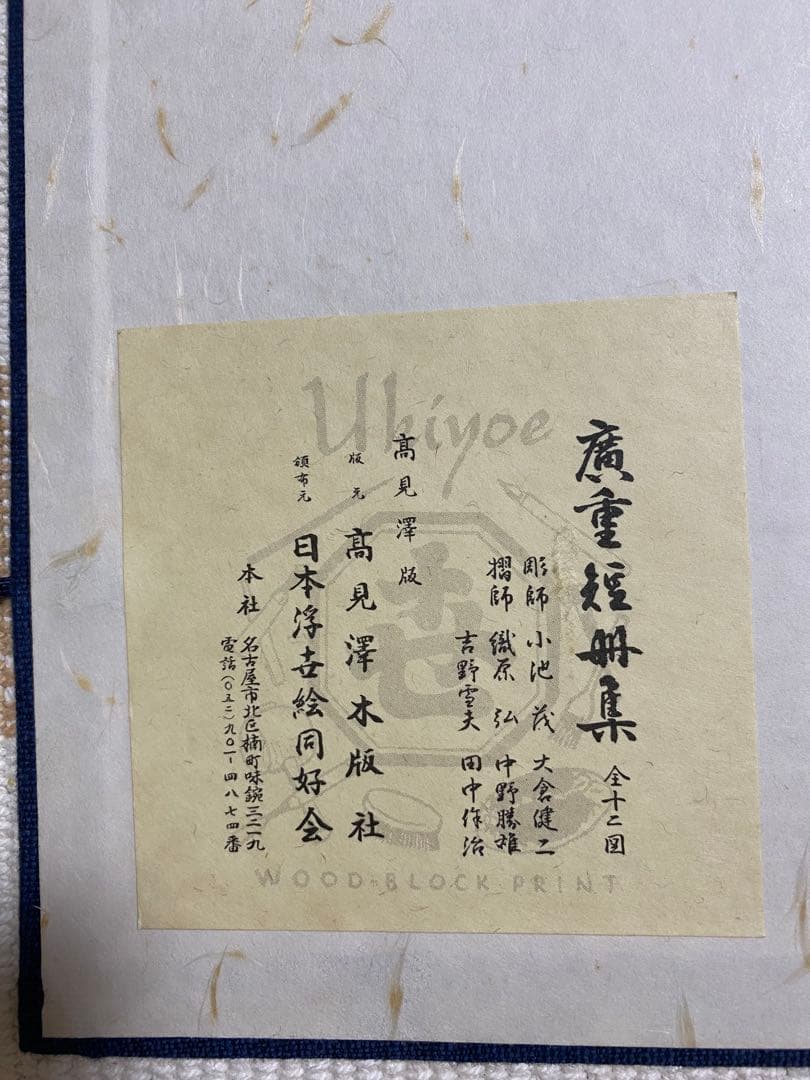 廣重短册集 全十二図
彫師 小池茂 大倉健二
摺師 織原弘 中野勝雄
吉野雪夫 田中作治
高見澤版
版元 高見澤木版社
頒布元 日本浮世絵同好会
本社 名古屋市北区楠町味鋺三二一九
電話(〇五二)九〇一-四八七四番
Ukiyoe
WOOD-BLOCK PRINT